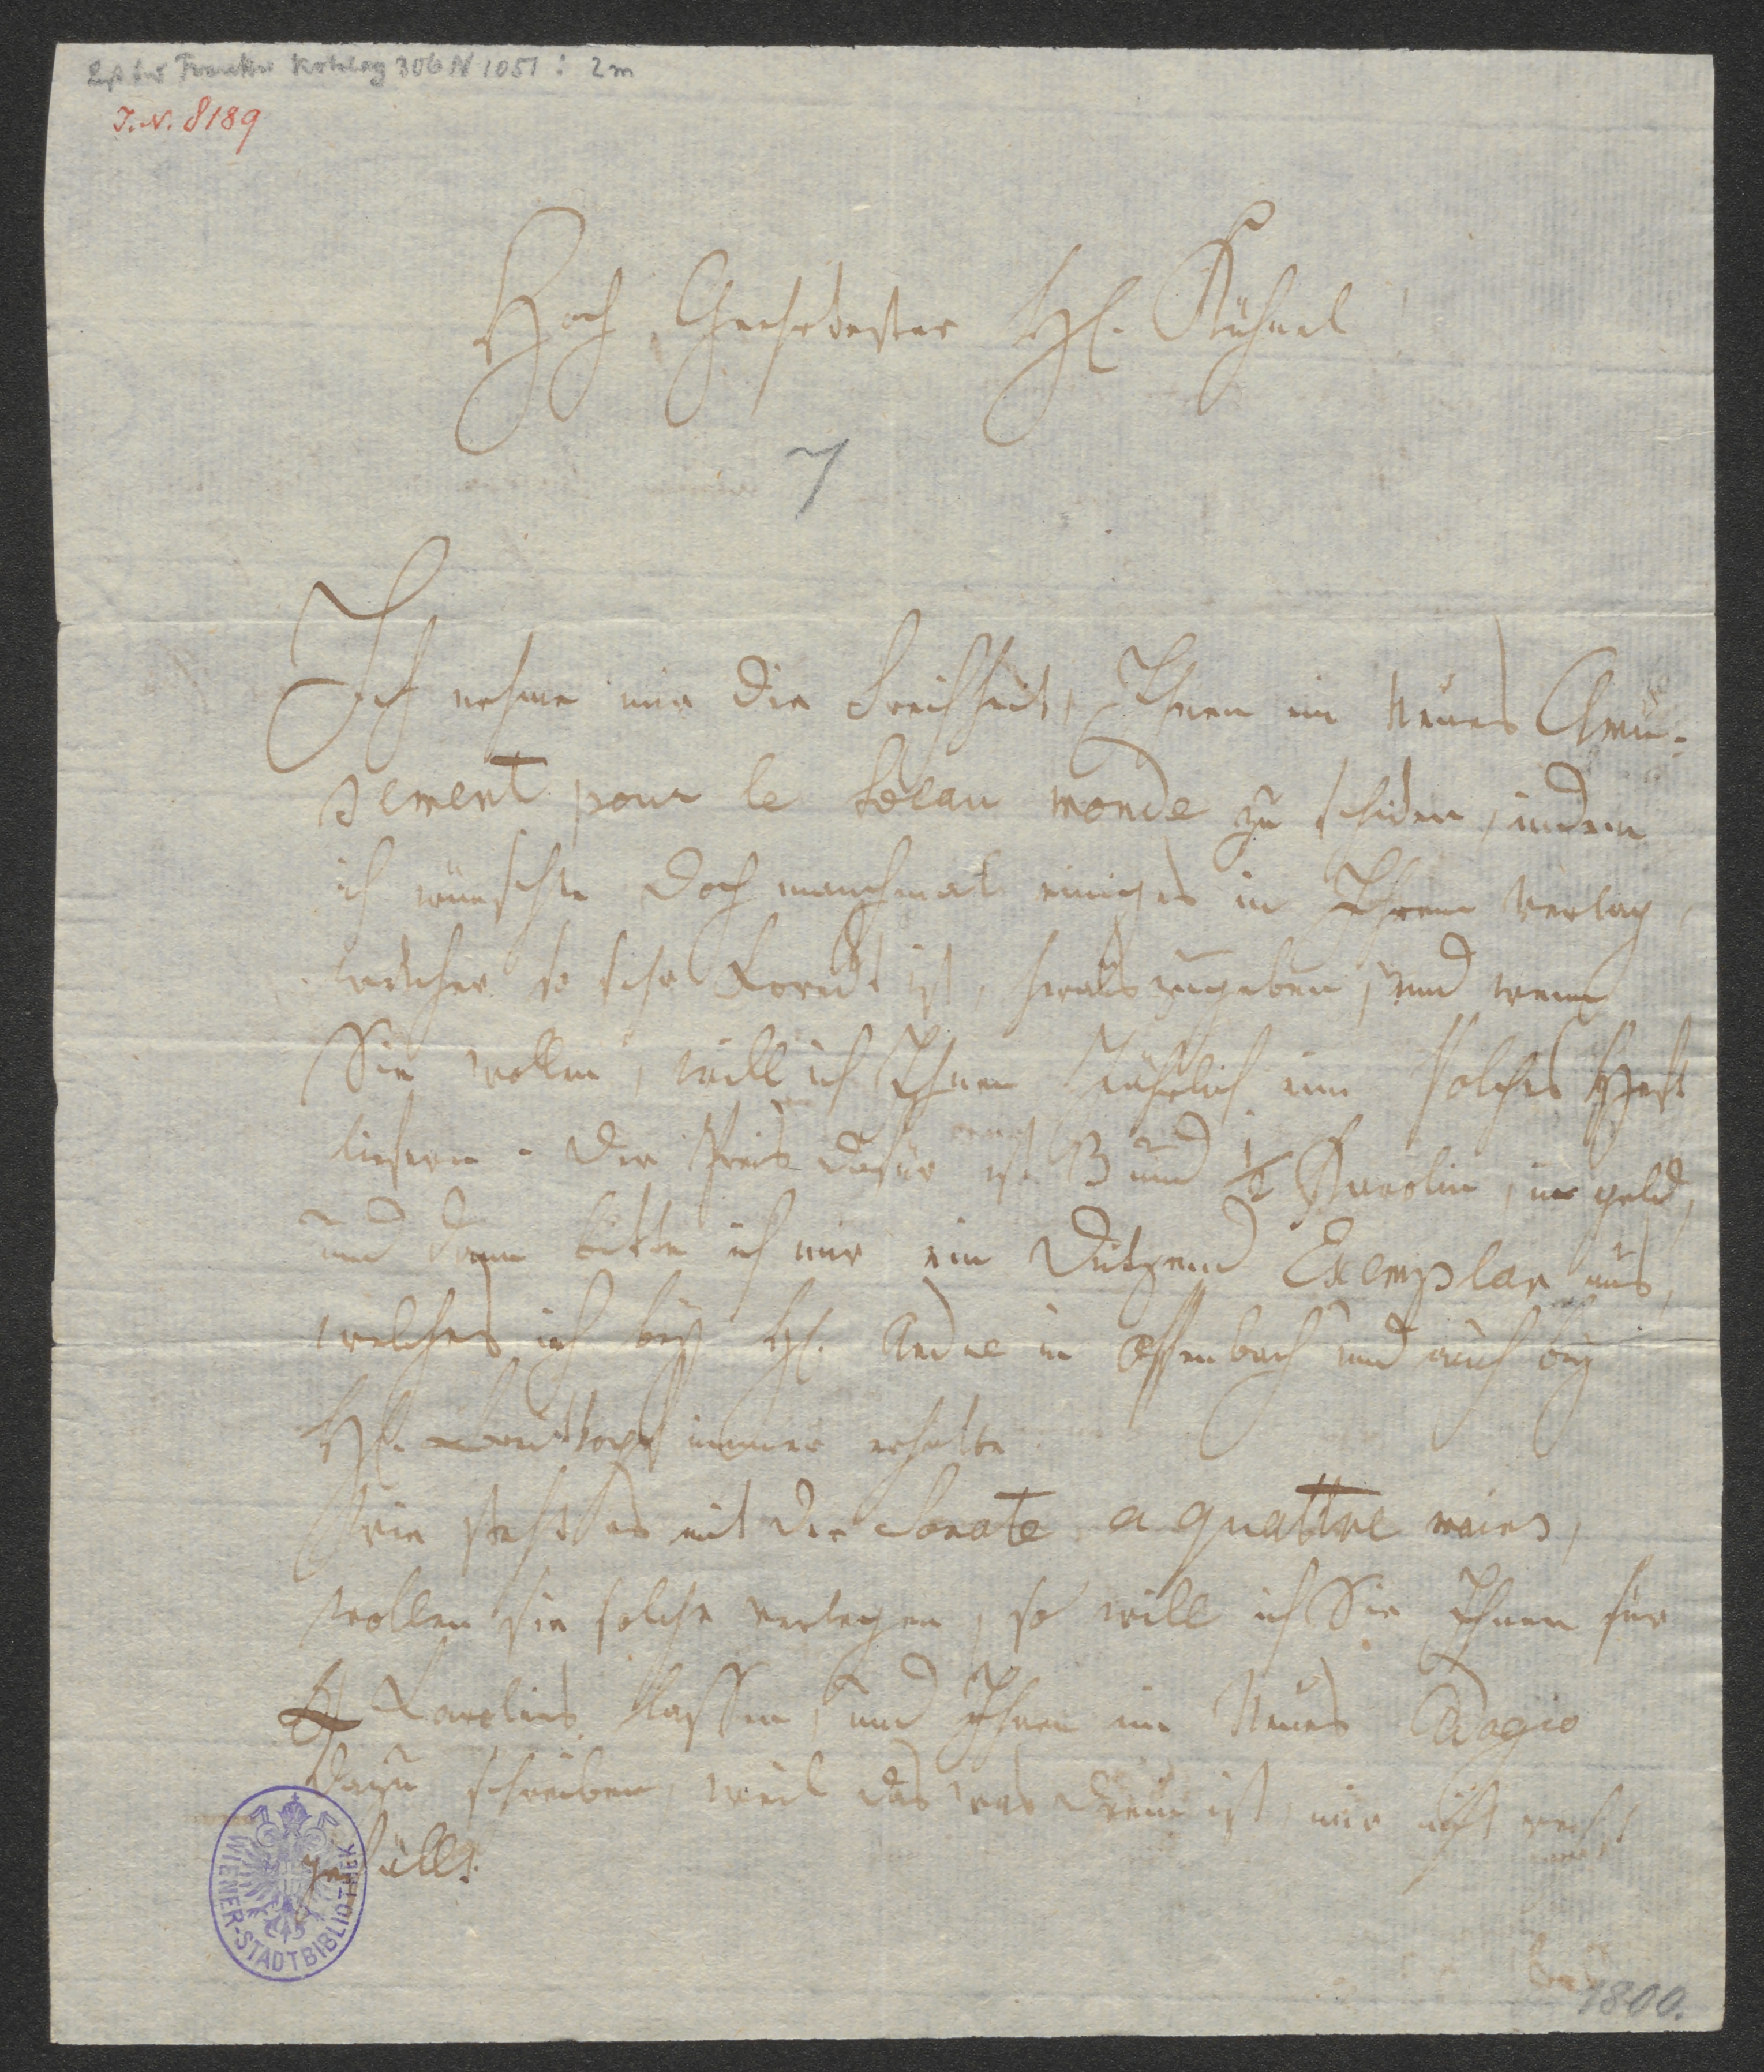 306 N 1051 : 2 m
I.N. 8189
Hoch Geehrtester H. Kühnel
7
Ich nehme mir die Freiheit, Ihnen ein Neues Amu-
sement pour le beau monde zu schicken, indem
ich wünschte doch manchmal einiges in Ihrem Verlag
welcher so sehr Korrekt ist, herauszugeben, und wenn
Sie wollen, will ich Ihnen Jährlich ein solches Heft
liefern. Der Preis dafür ist 3 und 1/2 Karolin, in geld,
und dann bitte ich mir ein Dutzend Exemplar aus,
welches ich bey H. Andre in Offenbach und auch bey
H. Breitkopf immer erhalte.
Wie steht es mit der Sonate a quattre mains,
wollen sie solche verlegen, so will ich Sie Ihnen für
Karolins lassen, und Ihnen ein Neues Adagio
dazu schreiben, weil das was drein ist, mir nicht recht
gefällt.
WIENER-STADTBIBLIOTHEK
1800.